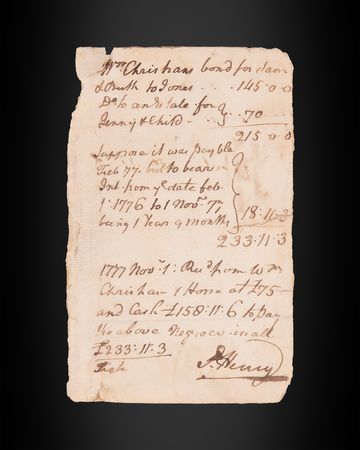 Wm Christians bond for Sam
& Ruth to Jones ... 145. 0. 0
Do to an Estate for
Jenny & Child } .. 70. ——
215. 0. 0
Suppose it was payable
Feb 77. but to bear
Int. from ye date feb.
1: 1776 to 1 Novr 77,
being 1 Year 9 months } 18: 11: 3
233: 11: 3
1777 Novr 1: Recd from Wm
Christian a Horse at £75
and Cash £158: 11: 6 to pay
the above Negroes in all
£233: 11: 3
P. Henry